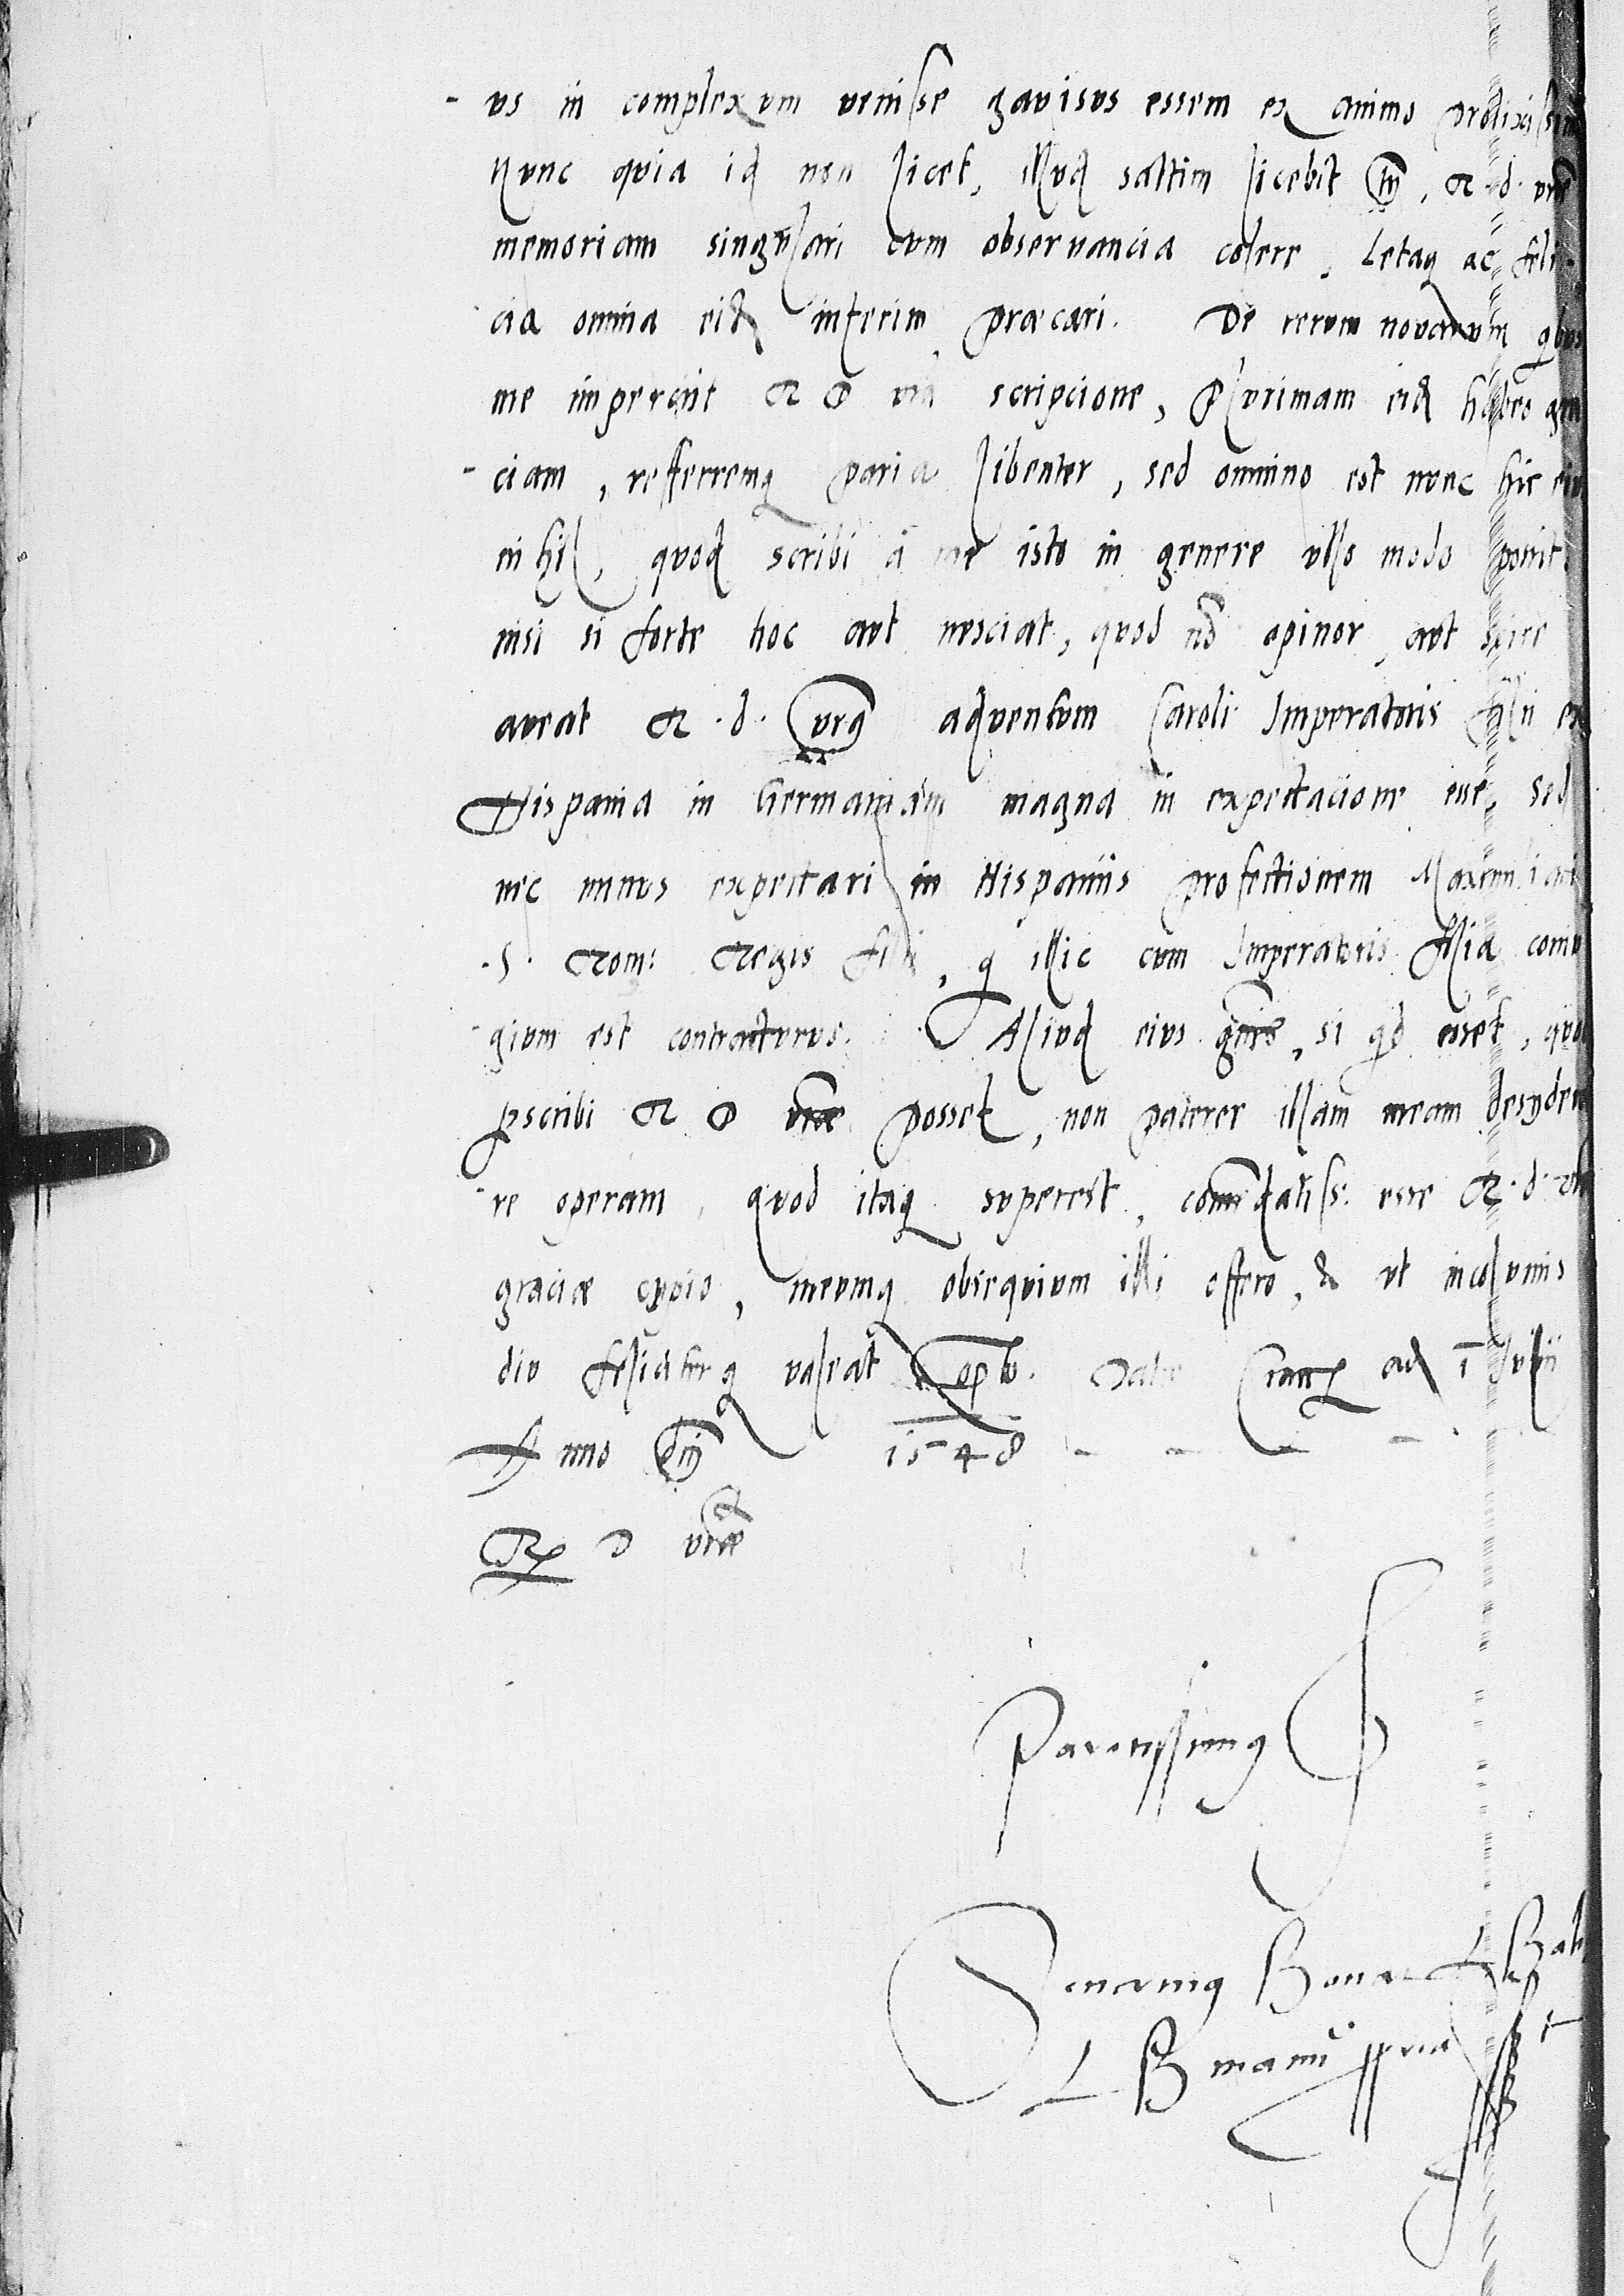 -us in complexum venisse gavisus essem ex animo prolixiss
Nunc quia id non licet, illud saltim licebit tn̄, R. d. vrē
memoriam singulari cum observancia colere, Letaq ac feli-
cia omnia eid interim præcari. De rerum novarum qbus
me impercijt R D vrā scripcione, Plurimam eid habeo gra
-ciam, referremq paria libenter, sed omnino est nunc hic
nihil, quod scribi à me isto in genere ullo modo possit
nisi si forte hoc aut nesciat, quod nō opinor, aut scire
aveat R. d. vrā adventum Caroli Imperatoris filii ex
Hispania in Germaniam magna in expectacione esse, sed
nec minus expectari in Hispaniis profectionem Maximiliani
.S. Rom: Regis filii, q illic cum Imperatoris filia coniu
-gium est contracturus. Aliud eius gn̄is, si qd esset, quod
pscribi R D vræ posset, non paterer illam meam desydera
-re operam, quod itaq superest, com̄datiss: esse R. d. vr̄æ
graciæ cupio, meumq obsequium illi offero, & ut incolumis
diu feliciterq valeat opto. Datæ Cracę ad 1 Julii
Anno Dnj 1548 - - - -
Rę D vræ
Paratissimus
Severinus Bonar L B
L B manu ppria